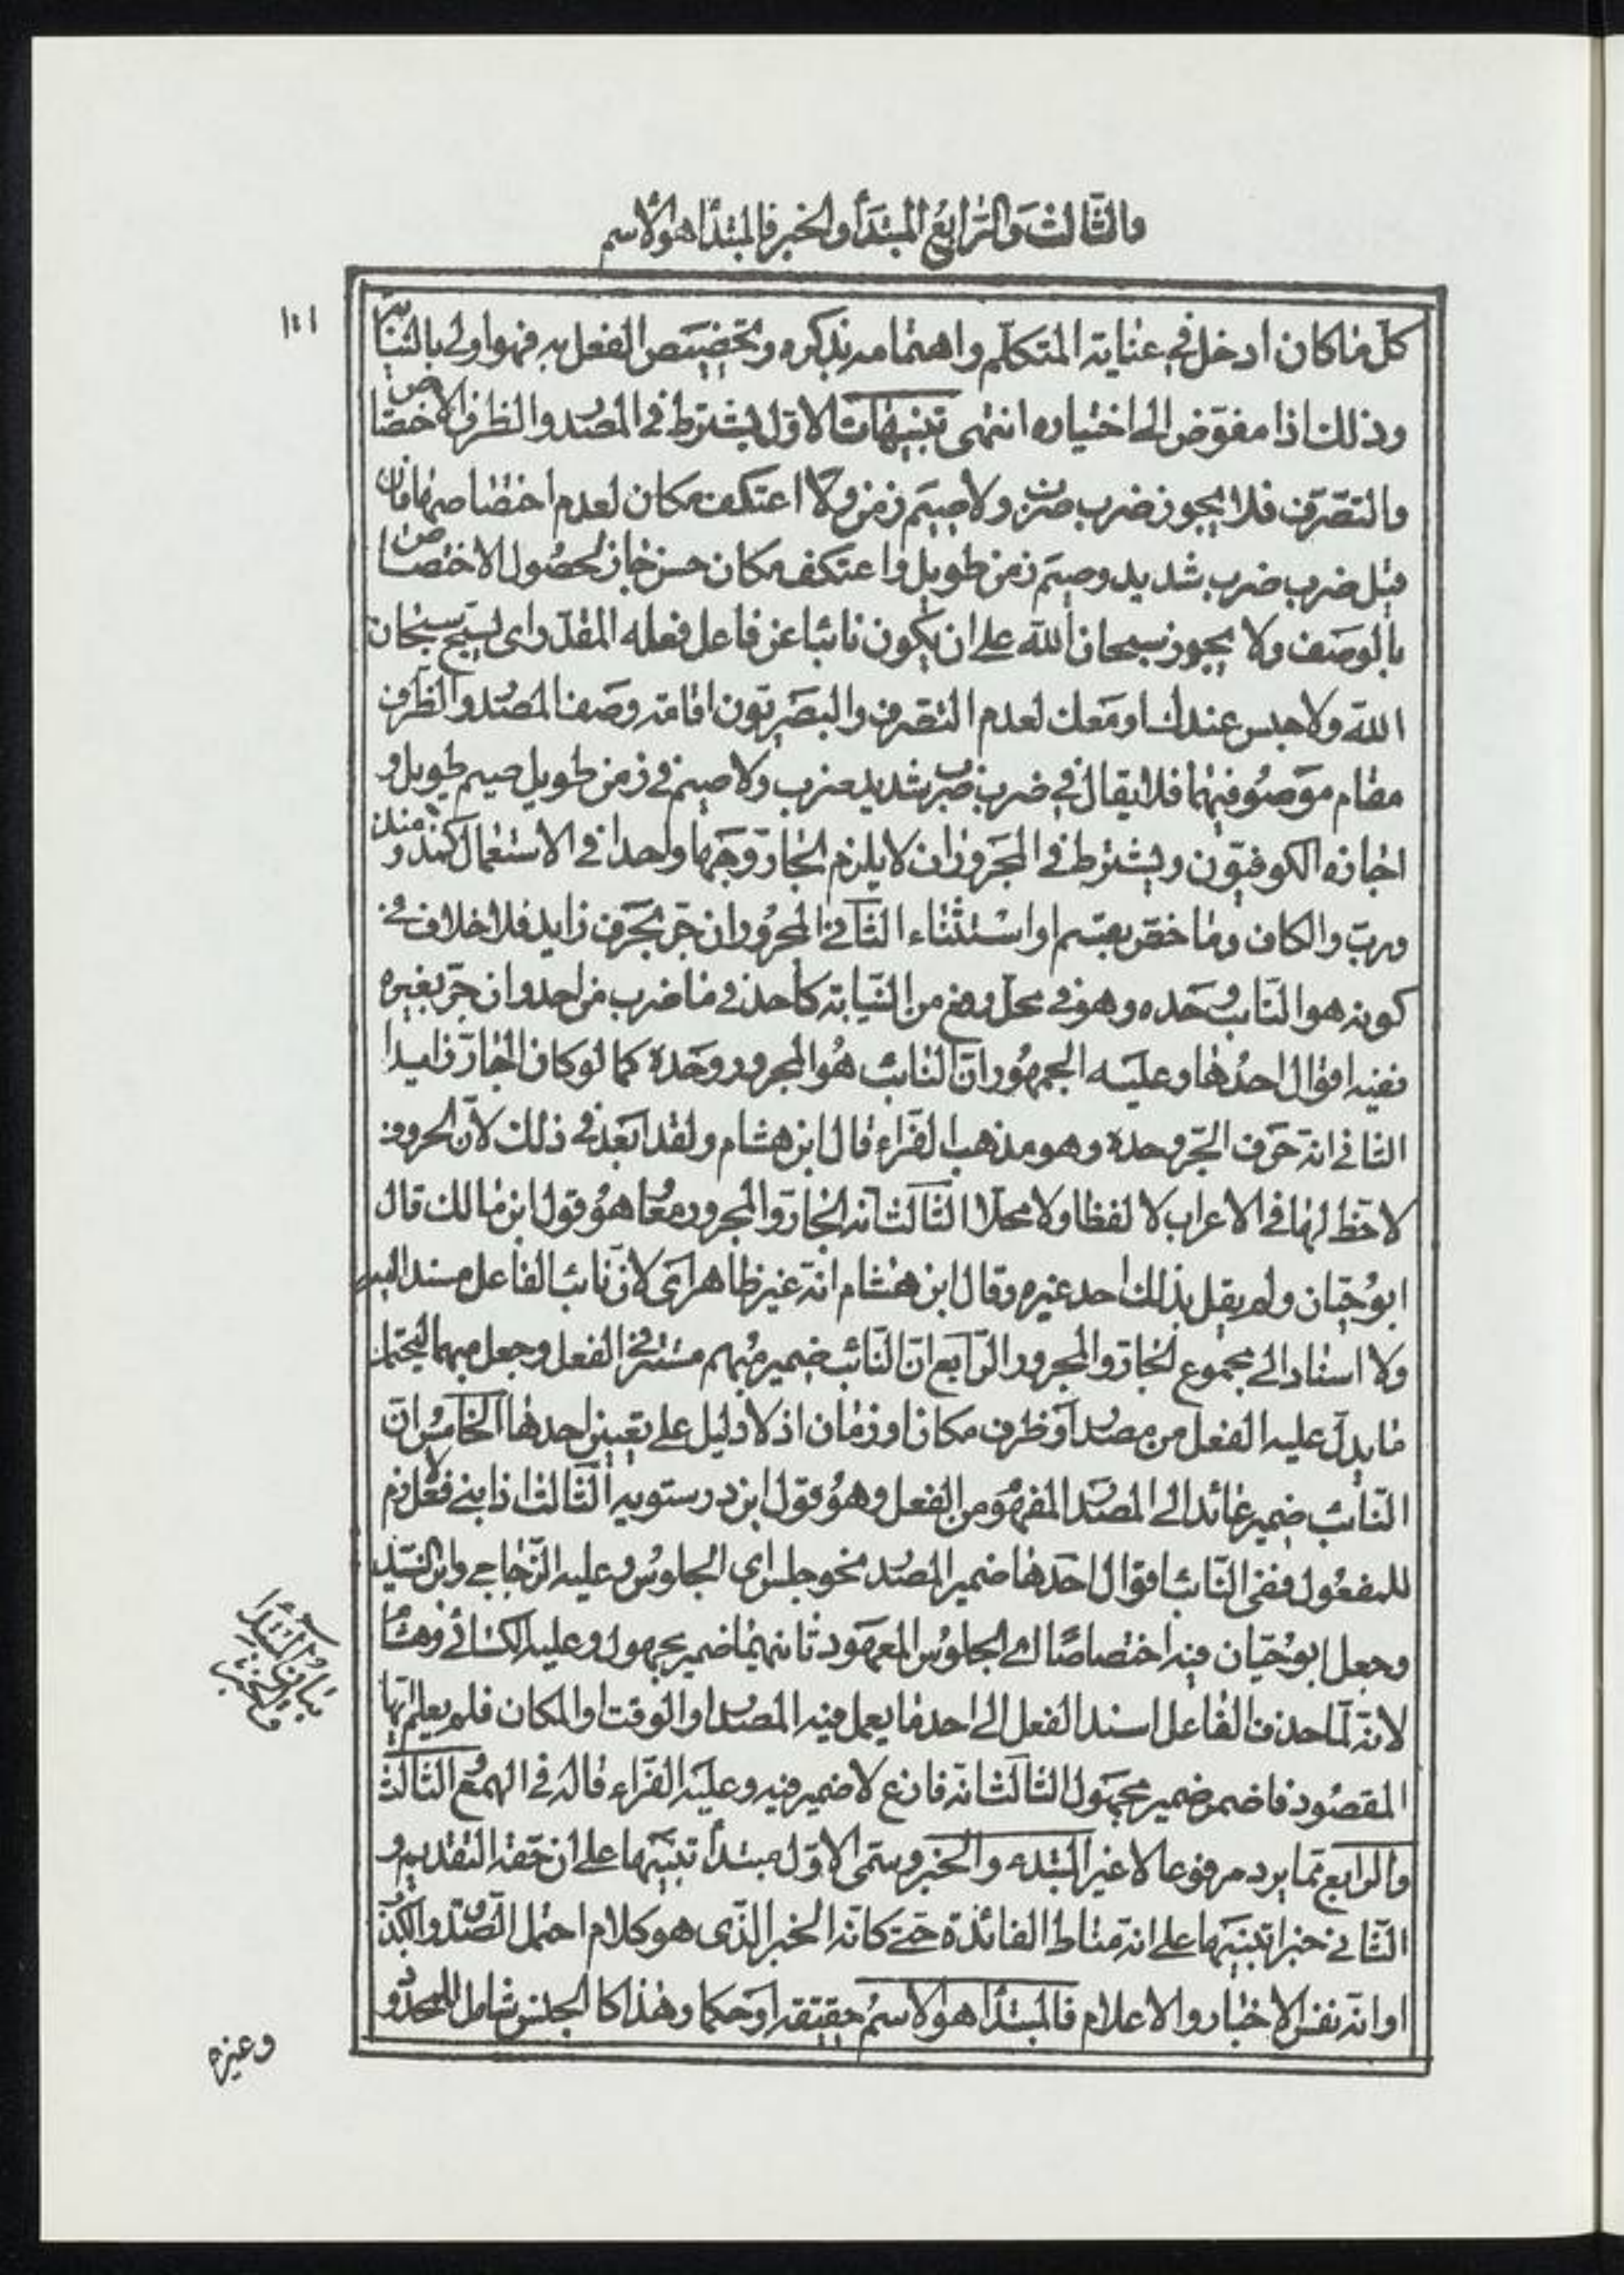 والثّالث والرّابع المبتدأ والخبر فالمبتدأ هو الاسم
١٤١
كلّ ما كان ادخل في عناية المتكلّم واهتمامه بذكره وتخصيص الفعل به فهو اولى بالنيابة
وذلك اذا مفوّض الى اختياره انتهى تنبيهات الاوّل يشترط في المصدر والظرف الاختصاص
والتصّرف فلا يجوز ضرب ضرب ولا صيم زمن ولا اعتكف مكان لعدم اختصاصهما فان
قيل ضرب ضرب شديد وصيم زمن طويل واعتكف مكان حسن جاز لحصول الاختصاص
بالوصف ولا يجوز سبحان اللّه على ان يكون نائبا عن فاعل فعله المقدّر اى يسبّح سبحان
اللّه ولا جلس عندك او معك لعدم التصّرف والبصريّون اقامة وصف المصدر والظرف
مقام موصوفيهما فلا يقال في ضرب ضرب شديد ضرب ولا صيم في زمن طويل صيم طويل و
اجازه الكوفيّون ويشترط في المجرور ان لا يلزم الجارّ وجها واحدا في الاستعمال كمذ ومنذ
وربّ والكاف وما خصّ بقسم او استثناء الثّانى المجرور ان جرّ بحرف زايد فلا خلاف في
كونه هو النّائب وحده وهو في محلّ رفع من النّيابة كاحد في ما ضرب من احد وان جرّ بغيره
ففيه اقوال احدها وعليه الجمهور انّ النائب هو المجرور وحده كما لو كان الجارّ زايدا
الثانى انّه حرف الجّر وحده وهو مذهب الفرّاء قال ابن هشام ولقد ابعد في ذلك لانّ الحروف
لا حظ لها في الاعراب لا لفظا ولا محلّا الثّالث انّه الجارّ والمجرور معا هو قول ابن مالك قال
ابو حيّان ولم يقل بذلك احد غيره وقال ابن هشام انّه غير ظاهر اى لانّ نائب الفاعل مسند اليه
ولا اسناد الى مجموع الجارّ والمجرور الرّابع انّ النّائب ضمير مبهم مستتر في الفعل وجعل مبهما ليحتمل
ما يدلّ عليه الفعل من مصدر او ظرف مكان او زمان اذ لا دليل على تعيين احدها الخامس انّ
النّائب ضمير عائد الى المصدر المفهوم من الفعل وهو قول ابن درستويه الثّالث اذا بنى فعل لازم
للمفعول ففى النّائب اقوال احدها ضمير المصدر نحو جلس اى الجلوس وعليه الزّجاجى وابن السّيد
وجعل ابو حيّان فيه اختصاصًا اى الجلوس المعهود ثانيهما ضمير مجهول وعليه الكسائى وهشام
لانّه لمّا حذف الفاعل اسند الفعل الى احد ما يعمل فيه المصدر او الوقت او المكان فلم يعلم ايّها
المقصود فاضمر ضمير مجهول الثالث انّه فارغ لا ضمير فيه وعليه الفرّاء قاله في الهمع الثالث
والرابع ممّا يرد مرفوعا لا غير المبتدء والخبر وسمّى الاوّل مبتدأ تنبيها على ان حقّه التقديم و
الثّانى خبرا تنبيها على انّه مناط الفائدة حتّى كانّه الخبر الذّى هو كلام احتمل الصّدق والكذب
او انّه نفس الاخبار والاعلام فالمبتدأ هو الاسم حقيقة او حكما وهذا كالجنس شامل للمحدود
بيان المبتدا
والخبر
وغيره